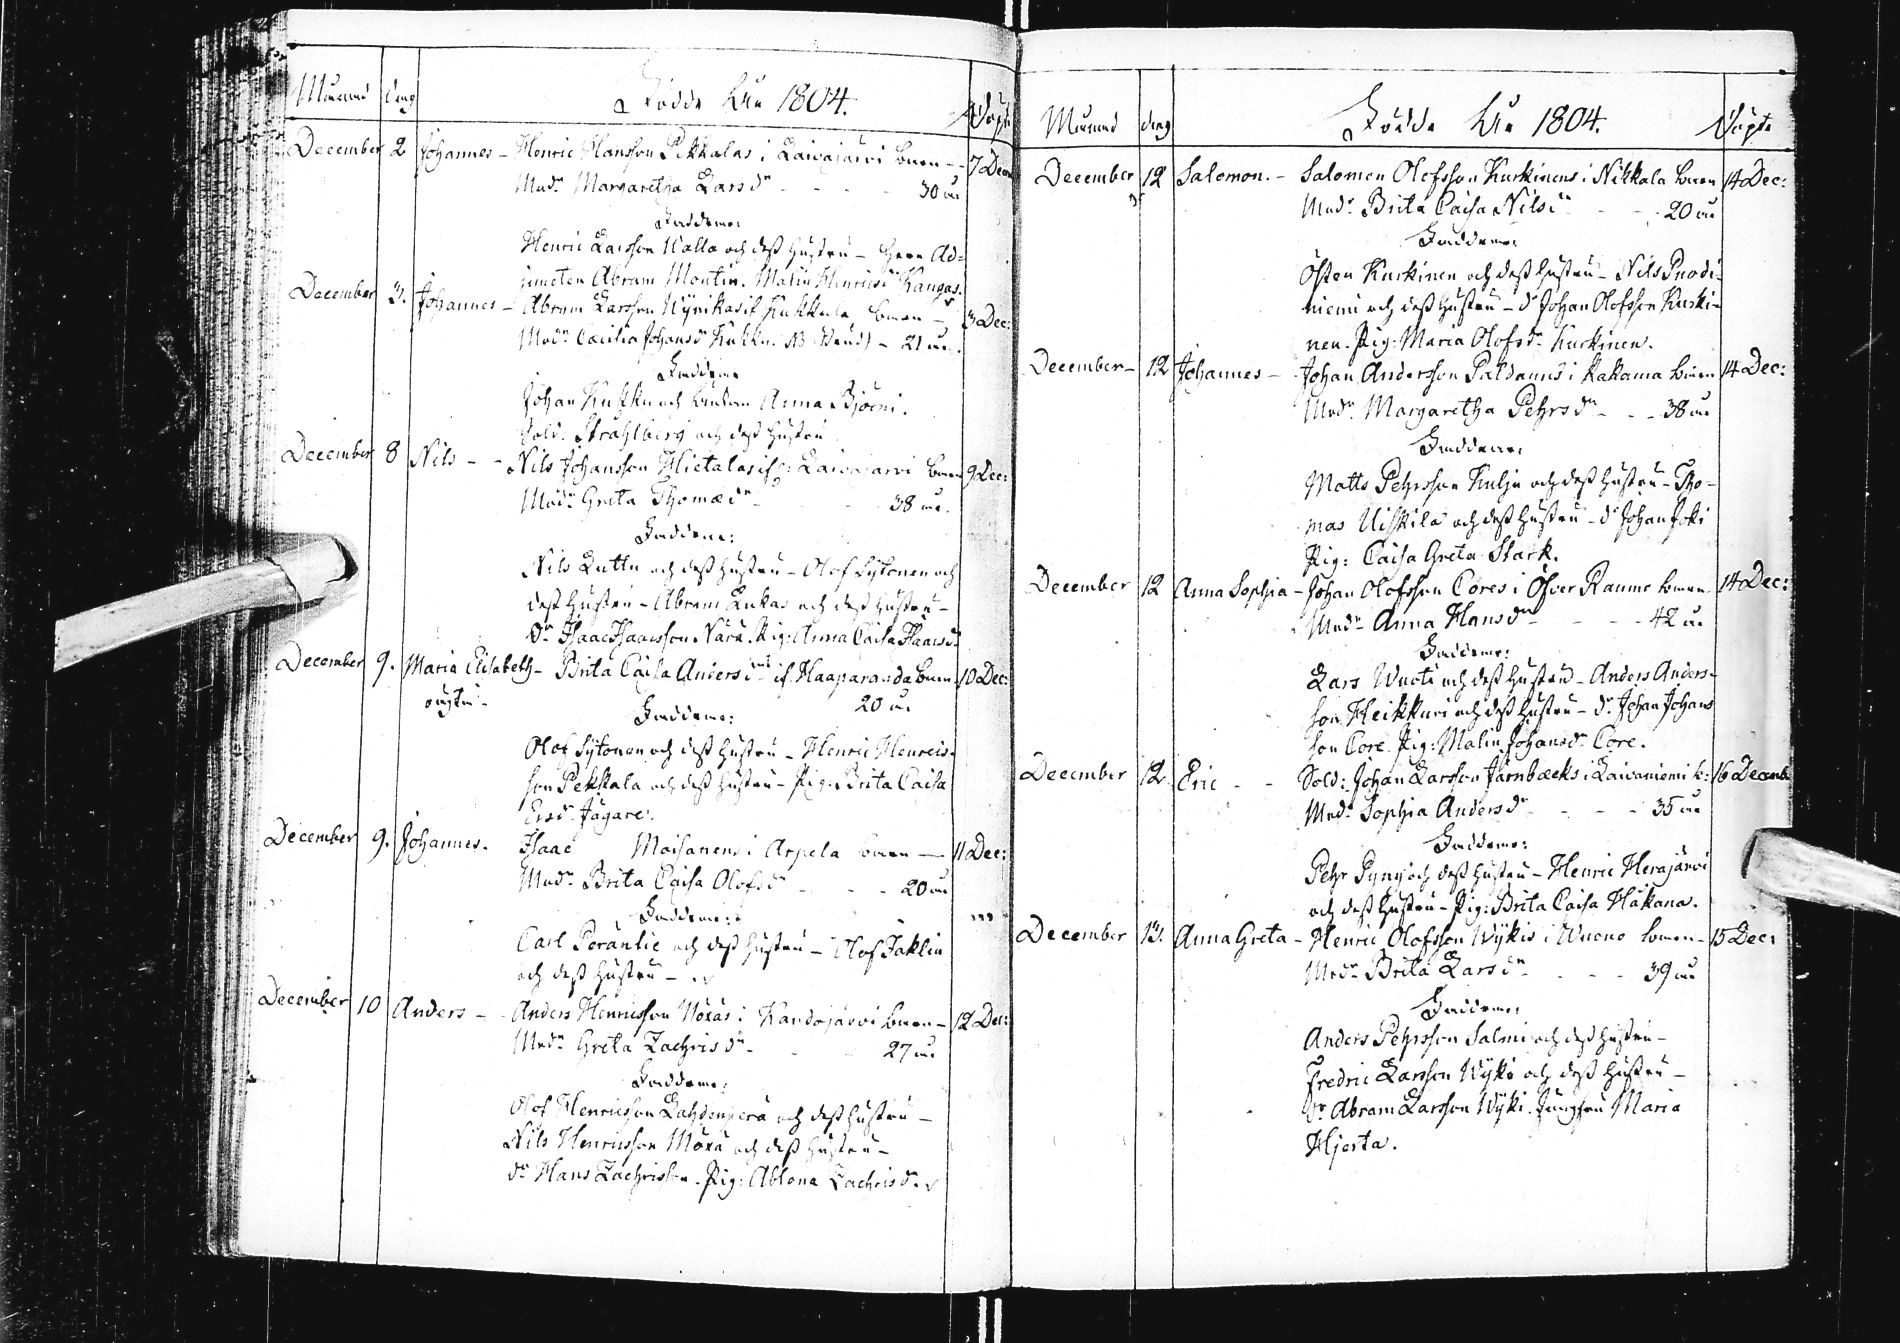 Månad dag Födde åhr 1804. Döpte
December 2 Johannes - Henric Hansson Pekkalas i Laivajärvi barn - 7 Decem
Modr Margaretha Larsdr - 30 åhr
Faddrar:
Henric Larsson Walla och dess hustru - Herr Ad=
juncten Abram Montin. Malin Henricsdr Kangas.
December 3. Johannes - Abram Larsson Kukkola barn - 3 Dec:
Modr Cæcilia Johansdr - 21 åhr.
Faddrar
Johan Kukko och Anna Björni.
Sold: Strahlberg och dess hustru
December 8 Nils - Nils Johansson Hietalas Laivajärvi barn 9 Dec:
Modr Greta Thomædr - 38 åhr.
Faddrar:
Nils Luttu och dess hustru - Olof Sytonen och
dess hustru - Abram Lukas och dess hustru -
Dr Isaac Isaacsson Nara. Pig: Anna Caisa Isaacsdr
December 9. Maria Elisabeth - Brita Caisa Andersdr Haaparanda barn 10 Dec:
oägta - 20 åhr
Faddrar:
Olof Sytonen och dess hustru - Henric Henrics=
son Pekkala och dess hustru - Pig: Brita Caisa
Ersdr Jägare.
December 9. Johannes. Isaac Moisanens i Arpela barn - 11 Dec:
Modr Brita Caisa Olofsdr - 20 åhr
Faddrar:
Carl Peräntie och dess hustru - Olof Jaklin
och dess hustru -
December 10 Anders - Anders Henricsson Moxas i Kandojärvi barn - 12 Dec:
Modr Greta Zachrisdr - 27 åhr
Faddrar:
Olof Henricsson Lahdenperä och dess hustru -
Nils Henricsson Moxa och dess hustru -
dr Hans Zachrisson. Pig: Ablona Zachrisdr
Månad dag Födde åhr 1804. Döpte
December 12 Salomon. - Salomon Olofsson Kurkinens i Nikkala barn 14 Dec:
Modr Brita Caisa Nilsdr - 20 åhr
Faddrar:
Östen Kurkinen och dess hustru - Nils Puodi=
niemi och dess hustru - dr Johan Olofsson Kurki=
nen. Pig: Maria Olofsdr Kurkinen.
December - 12 Johannes - Johan Andersson Paldanus i Kakama barn 14 Dec:
Modr Margaretha Pehrsdr - 38 åhr
Faddrar:
Matts Pehrsson Kulju och dess hustru - Tho=
mas Uiskila och dess hustru - dr Johan Joki
Pig: Caisa Greta Stark.
December 12 Anna Sophia - Johan Olofsson Cores i Öfver Raumo barn 14 Dec:
Modr Anna Hansdr - 42 åhr
Faddrar:
Lars Wuoti och dess hustru - Anders Anders=
son Heikkuri och dess hustru - dr Johan Johans
son Core. Pig: Malin Johansdr Core.
December 12. Eric - Sold: Johan Larsson Järnbæcks i Laivaniemi b: 16 Decemb
Modr Sophia Andersdr - 35 åhr
Faddrar:
Pehr Pyny och dess hustru - Henric Herajärvi
och dess hustru - Pig: Brita Caisa Håkana.
December 13. Anna Greta - Henric Olofsson Wykis i Wuono barn - 15 Dec:
Modr Brita Larsdr - 39 åhr
Faddrar:
Anders Pehrsson Salmi och dess hustru -
Fredric Larsson Wyki och dess hustru -
Dr Abram Larsson Wyki. Jungfru Maria
Hjerta.